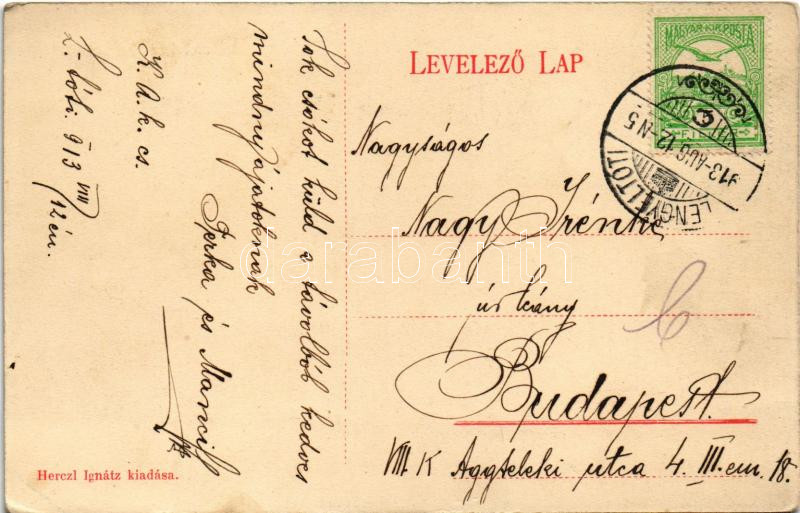 LEVELEZŐ LAP
MAGYAR KIR. POSTA
LENGYELTÓTI
913 AUG 12 -N5
Nagyságos
Nagy Irénke
úrleány
Budapest.
VIII. K Aggteleki utca 4. III. em. 18.
K. A. k. cs.
L.-tóti 913 VIII/12 én.
Sok csókot küld a távolból kedves
mindnyájatoknak
Ferka és Mancil
Herczl Ignátz kiadása.
darabanth